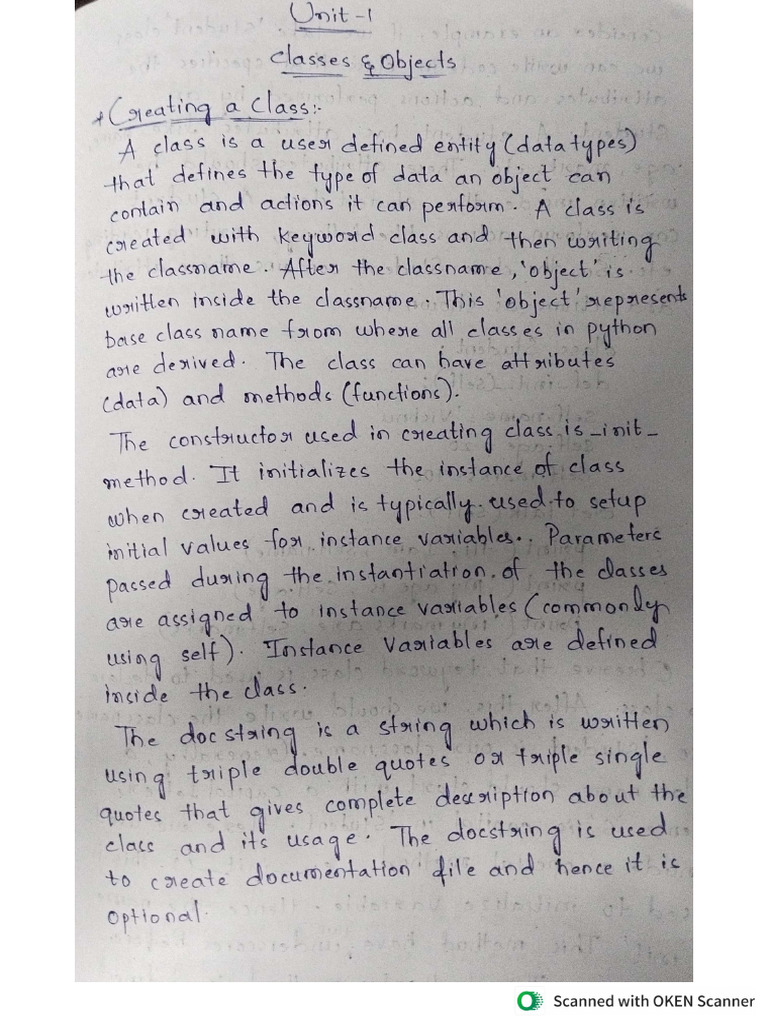 Unit-1
Classes & Objects
* Creating a Class:-
A class is a user defined entity (data types)
that defines the type of data an object can
contain and actions it can perform. A class is
created with keyword class and then writing
the classname. After the classname, 'object' is
written inside the classname. This 'object' represents
base class name from where all classes in python
are derived. The class can have attributes
(data) and methods (functions).
The constructor used in creating class is _init_
method. It initializes the instance of class
when created and is typically used to setup
initial values for instance variables.. Parameters
passed during the instantiation of the classes
are assigned to instance variables (commonly
using self). Instance Variables are defined
inside the class.
The docstring is a string which is written
using triple double quotes or triple single
quotes that gives complete description about the
class and its usage. The docstring is used
to create documentation file and hence it is
optional.
Scanned with OKEN Scanner